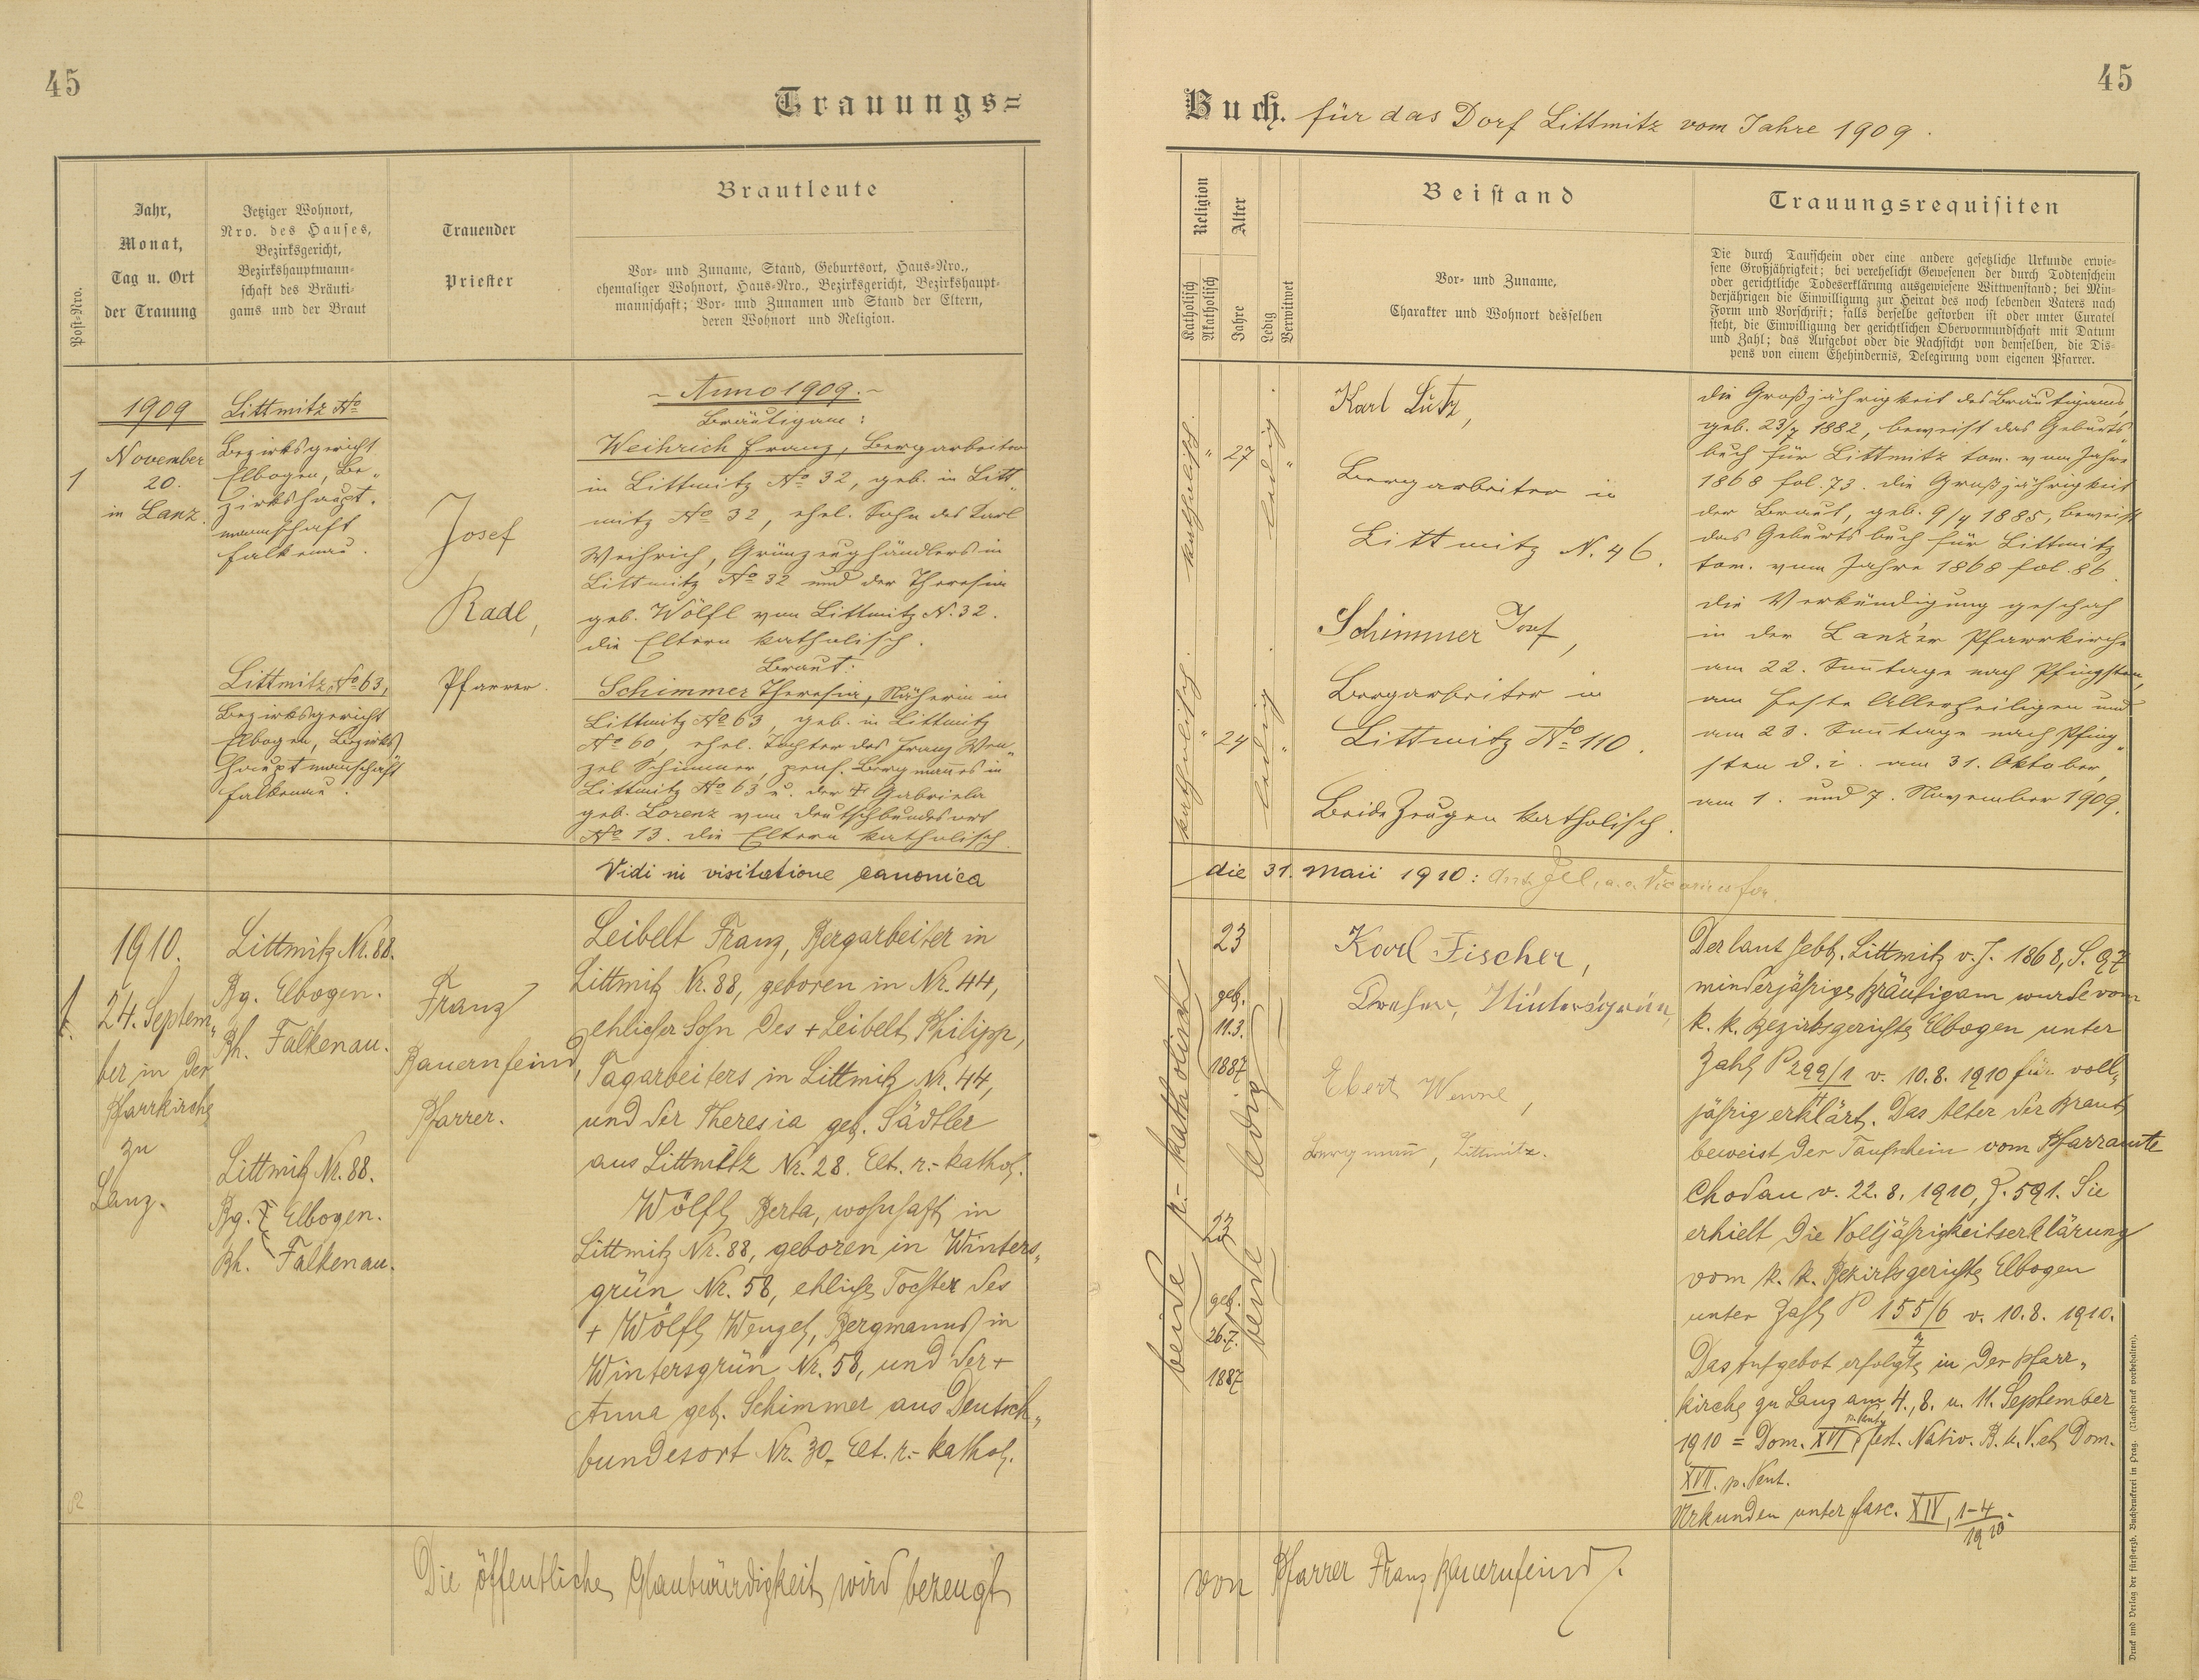 45
Trauungs=
Post=Nro.
Jahr,
Monat,
Tag u. Ort
der Trauung
Jetziger Wohnort,
Nro. des Hauses,
Bezirksgericht,
Bezirkshauptmann=
schaft des Bräuti=
gams und der Braut
Trauender
Priester
Brautleute
Vor= und Zuname, Stand, Geburtsort, Haus=Nro.,
ehemaliger Wohnort, Haus=Nro., Bezirksgericht, Bezirkshaupt=
mannschaft; Vor= und Zunamen und Stand der Eltern,
deren Wohnort und Religion.
1
1909
November
20.
in Lanz.
Littmitz No
Bezirksgericht
Elbogen, Be„
zirkshaupt.
mannschaft
Falkenau.
Littmitz No 63,
Bezirksgericht
Elbogen, Bezirks
hauptmanschaft
Falkenau.
Josef
Radl,
Pfarrer.
~ Anno 1909. ~
Bräutigam:
Weihrich Franz, Bergarbeiter
in Littmitz No 32, geb. in Litt„
mitz No 32, ehel. Sohn des Karl
Weihrich, Grünzeughändlers in
Littmitz No 32 und der Theresia
geb. Wölfl von Littmitz N. 32.
die Eltern katholisch.
Braut:
Schimmer Theresia, Näherin in
Littmitz No 63, geb. in Littmitz
No 60, ehel. Tochter des Franz Wen„
zel Schimmer, pens. Bergmannes in
Littmitz No 63 u. der + Gabriela
geb. Lorenz von Deutschbundesort
No 13. die Eltern katholisch.
Vidi in visitatione canonica
1
1910.
24. Septem„
ber in der
Pfarrkirche
zu
Lanz.
Littmitz Nr. 88.
Bg. Elbogen.
Bh. Falkenau.
Littmitz Nr. 88.
Bg. Elbogen.
Bh. Falkenau.
Franz
Bauernfeind,
Pfarrer.
Leibelt Franz, Bergarbeiter in
Littmitz Nr. 88, geboren in Nr. 44,
ehlicher Sohn des + Leibelt Philipp,
Tagarbeiters in Littmitz Nr. 44,
und der Theresia geb. Sädtler
aus Littmitz Nr. 28. Elt. r.- kathol.
Wölfl Berta, wohnhaft in
Littmitz Nr. 88, geboren in Winters„
grün Nr. 58, ehliche Tochter des
+ Wölfl Wenzel, Bergmanns in
Wintersgrün Nr. 58, und der +
Anna geb. Schimmer aus Deutsch„
bundesort Nr. 30. Elt. r.- kathol.
Die öffentliche Glaubwürdigkeit wird bezeugt
45
Buch. für das Dorf Littmitz vom Jahre 1909.
Religion
Katholisch
Akatholisch
Alter
Jahre
Ledig
Verwitwet
Beistand
Vor= und Zuname,
Charakter und Wohnort desselben
Trauungsrequisiten
Die durch Taufschein oder eine andere gesetzliche Urkunde erwie=
sene Großjährigkeit; bei verehelicht Gewesenen der durch Todtenschein
oder gerichtliche Todeserklärung ausgewiesene Wittwenstand; bei Min=
derjährigen die Einwilligung zur Heirat des noch lebenden Vaters nach
Form und Vorschrift; falls derselbe gestorben ist oder unter Curatel
steht, die Einwilligung der gerichtlichen Obervormundschaft mit Datum
und Zahl; das Aufgebot oder die Nachsicht von demselben, die Dis=
pens von einem Ehehindernis, Delegirung vom eigenen Pfarrer.
katholisch.
27
ledig
katholisch.
24
ledig
Karl Lutz,
Bergarbeiter in
Littmitz N. 46.
Schimmer Josef,
Bergarbeiter in
Littmitz No 110.
Beide Zeugen katholisch.
die Großjährigkeit des Bräutigams,
geb. 23/7 1882, beweist das Geburts„
buch für Littmitz tom. vom Jahre
1868 fol. 73. die Großjährigkeit
der Braut, geb. 9/4 1885, beweist
das Geburtsbuch für Littmitz
tom. vom Jahre 1868 fol. 86.
die Verkündigung geschah
in der Lanz'er Pfarrkirche
am 22. Sonntage nach Pfingsten,
am Feste Allerheiligen und
am 23. Sonntage nach Pfing„
sten d. i. am 31. Oktober,
am 1. und 7. November 1909.
die 31. Maii 1910:
beide r.- katholisch
23
geb.
11.3.
1887
23
geb.
26.7.
1887
beide ledig
Karl Fischer,
Dreher, Wintersgrün,
Ebert Wenzel,
Bergmann, Littmitz.
Der laut Gebb. Littmitz v. J. 1868, S. 97
minderjährige Bräutigam wurde vom
k. k. Bezirksgerichte Elbogen unter
Zahl P 299/1 v. 10.8. 1910 für voll„
jährig erklärt. Das Alter der Braut
beweist der Taufschein vom Pfarramte
Chodau v. 22. 8. 1910, Z. 591. Sie
erhielt die Volljährigkeitserklärung
vom k. k. Bezirksgerichte Elbogen
unter Zahl P 155/6 v. 10.8. 1910.
Das Aufgebot erfolgte in der Pfarr„
kirche zu Lanz am 4., 8. u. 11. September
1910 = Dom. XVI p. Pent., fest. Nativ. B. M. V. et Dom.
XVII. p. Pent.
Urkunden unter fasc. XIV, 1-4/1910.
von Pfarrer Franz Bauernfeind.
Druck und Verlag der fürsterzb. Buchdruckerei in Prag. (Nachdruck vorbehalten).